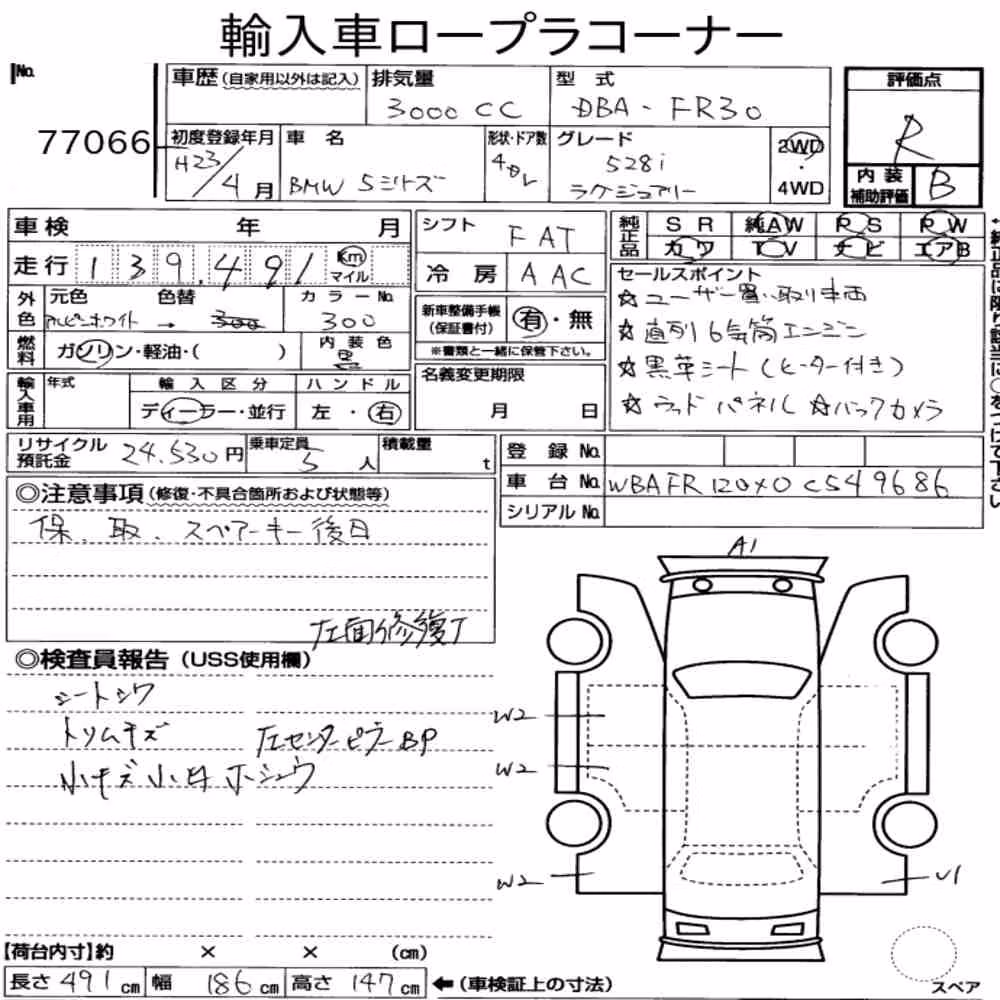 輸入車ロープラコーナー
No.
77066
車歴(自家用以外は記入)
排気量
3000 CC
型式
DBA - FR30
評価点
R
初度登録年月
H23/4月
車名
BMW 5シリーズ
形状・ドア数
4DL
グレード
528i
ラグジュアリー
2WD
・
4WD
内装
補助評価
B
車検 年 月
シフト
FAT
純正品
SR 純AW PS PW
カワ TV ナビ エアB
走行 139,491 Km マイル
冷房
AAC
セールスポイント
☆ユーザー買い取り車両
☆直列6気筒エンジン
☆黒革シート(ヒーター付き)
☆ウッドパネル ☆バックカメラ
外色
元色 色替 カラーNo.
アルピンホワイト → 300
新車整備手帳
(保証書付)
有・無
※書類と一緒に保管下さい。
燃料
ガソリン・軽油・( )
内装色
黒
名義変更期限
月 日
輸入車用
年式
輸入区分
ディーラー・並行
ハンドル
左・右
リサイクル
預託金
24,530円
乗車定員
5人
積載量
t
登録No.
車台No. WBAFR120X0C549686
シリアルNo.
◎注意事項(修復・不具合箇所および状態等)
保、取、スペアーキー後日
左面修復了
◎検査員報告(USS使用欄)
シートシワ
トリムキズ
左センターピラーBP
小キズ小凹 ホシュウ
A1
W2
W2
W2
U1
【荷台内寸】約 × × (cm)
長さ491cm 幅186cm 高さ147cm ←(車検証上の寸法)
スペア